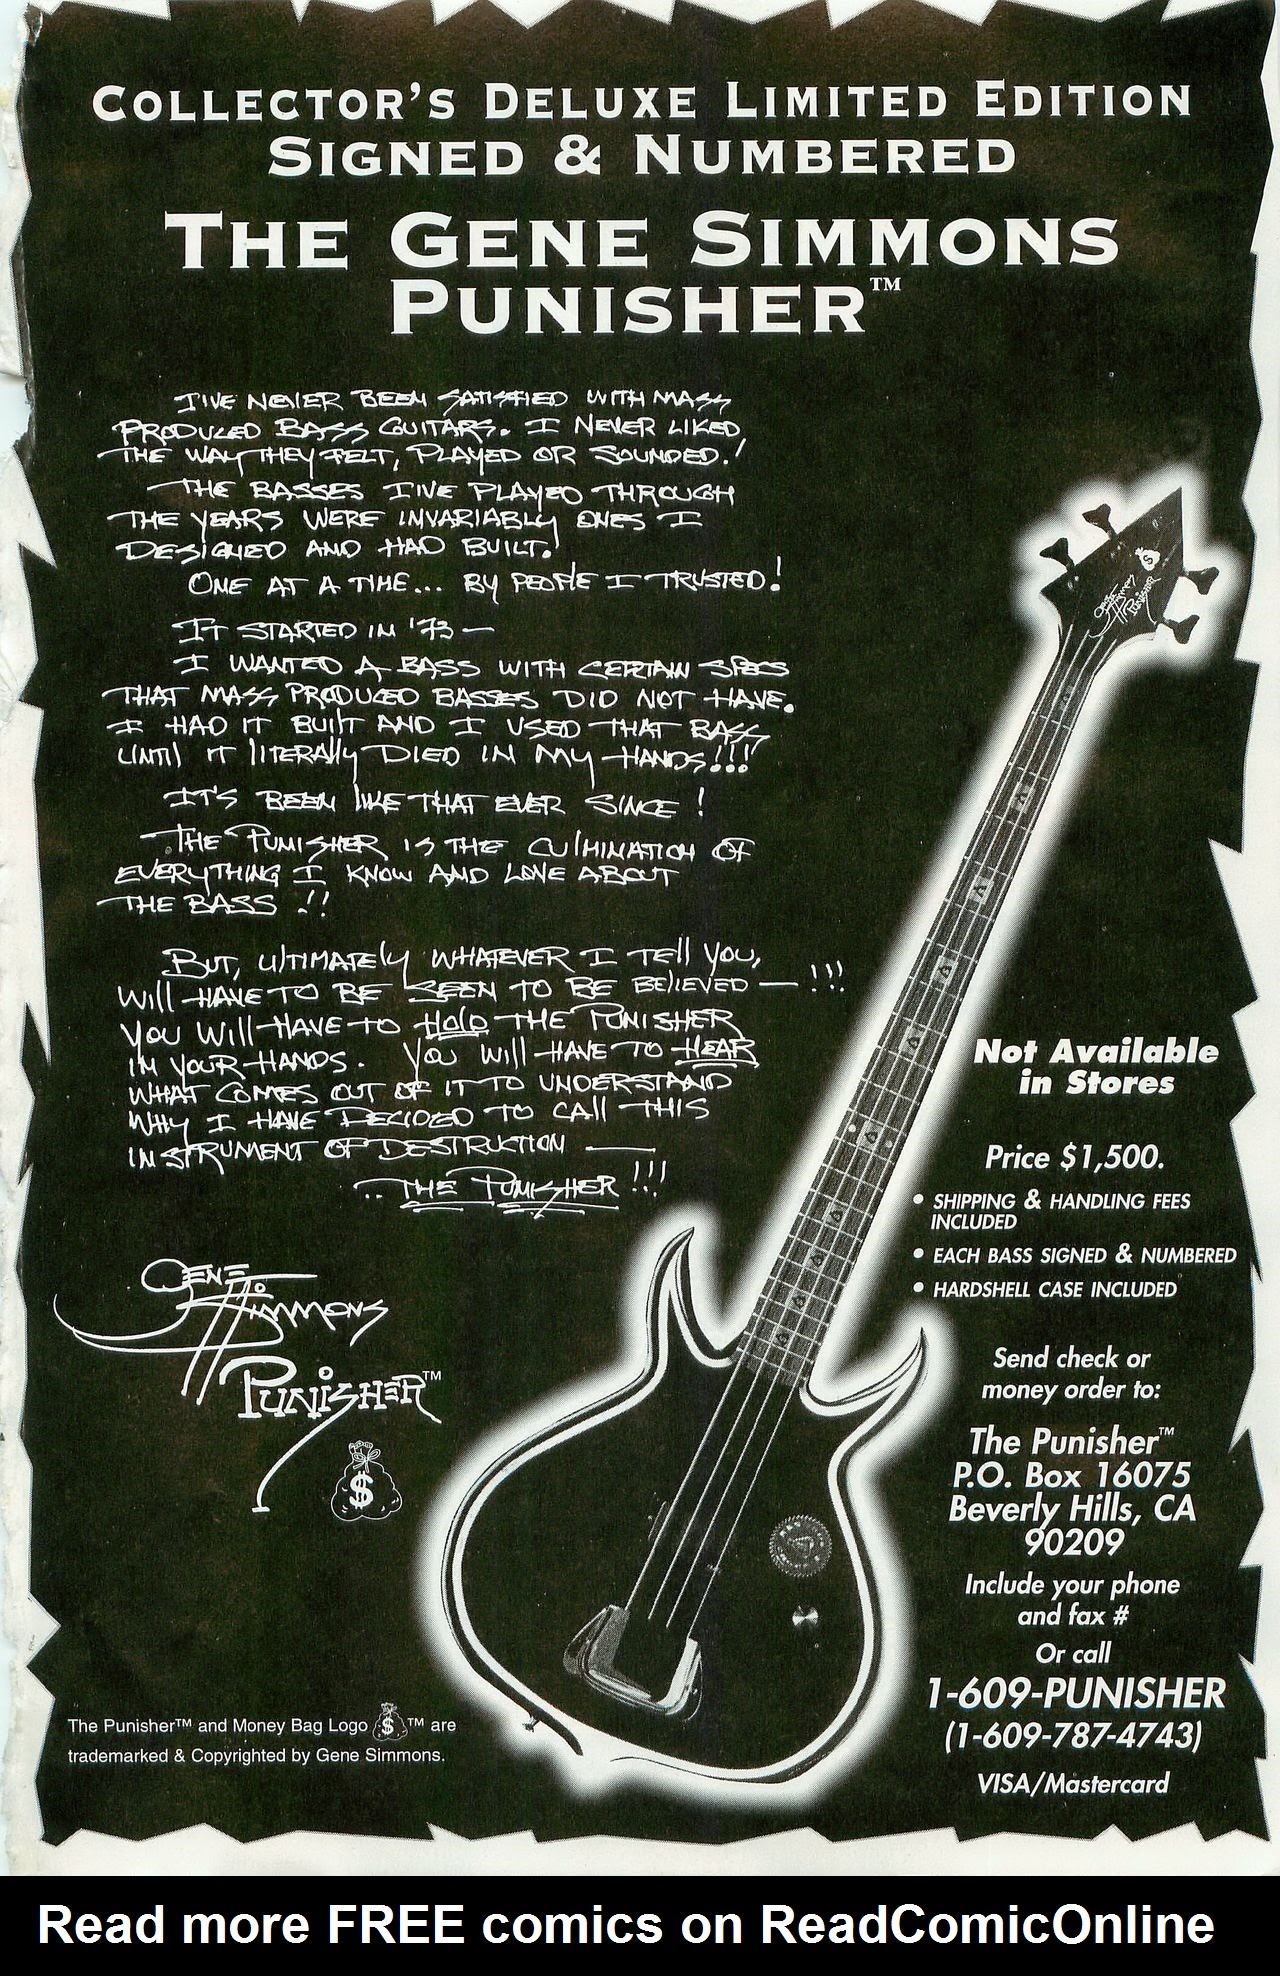 COLLECTOR'S DELUXE LIMITED EDITION
SIGNED & NUMBERED
THE GENE SIMMONS
PUNISHER™
I'VE NEVER BEEN SATISFIED WITH MASS
PRODUCED BASS GUITARS. I NEVER LIKED
THE WAY THEY FELT, PLAYED OR SOUNDED!
THE BASSES I'VE PLAYED THROUGH
THE YEARS WERE INVARIABLY ONES I
DESIGNED AND HAD BUILT!
ONE AT A TIME... BY PEOPLE I TRUSTED!
IT STARTED IN '73 —
I WANTED A BASS WITH CERTAIN SPECS
THAT MASS PRODUCED BASSES DID NOT HAVE.
I HAD IT BUILT AND I USED THAT BASS
UNTIL IT LITERALLY DIED IN MY HANDS!!!
IT'S BEEN LIKE THAT EVER SINCE!
THE PUNISHER IS THE CULMINATION OF
EVERYTHING I KNOW AND LOVE ABOUT
THE BASS!!
BUT, ULTIMATELY WHATEVER I TELL YOU,
WILL HAVE TO BE SEEN TO BE BELIEVED — !!!
YOU WILL HAVE TO HOLD THE PUNISHER
IN YOUR HANDS. YOU WILL HAVE TO HEAR
WHAT COMES OUT OF IT TO UNDERSTAND
WHY I HAVE DECIDED TO CALL THIS
INSTRUMENT OF DESTRUCTION —
..THE PUNISHER!!!
GENE
SIMMONS
PUNISHER™
$
Gene
Simmons
Punisher
$
Not Available
in Stores
Price $1,500.
• SHIPPING & HANDLING FEES
INCLUDED
• EACH BASS SIGNED & NUMBERED
• HARDSHELL CASE INCLUDED
Send check or
money order to:
The Punisher™
P.O. Box 16075
Beverly Hills, CA
90209
Include your phone
and fax #
Or call
1-609-PUNISHER
(1-609-787-4743)
VISA/Mastercard
The Punisher™ and Money Bag Logo $™ are
trademarked & Copyrighted by Gene Simmons.
Read more FREE comics on ReadComicOnline